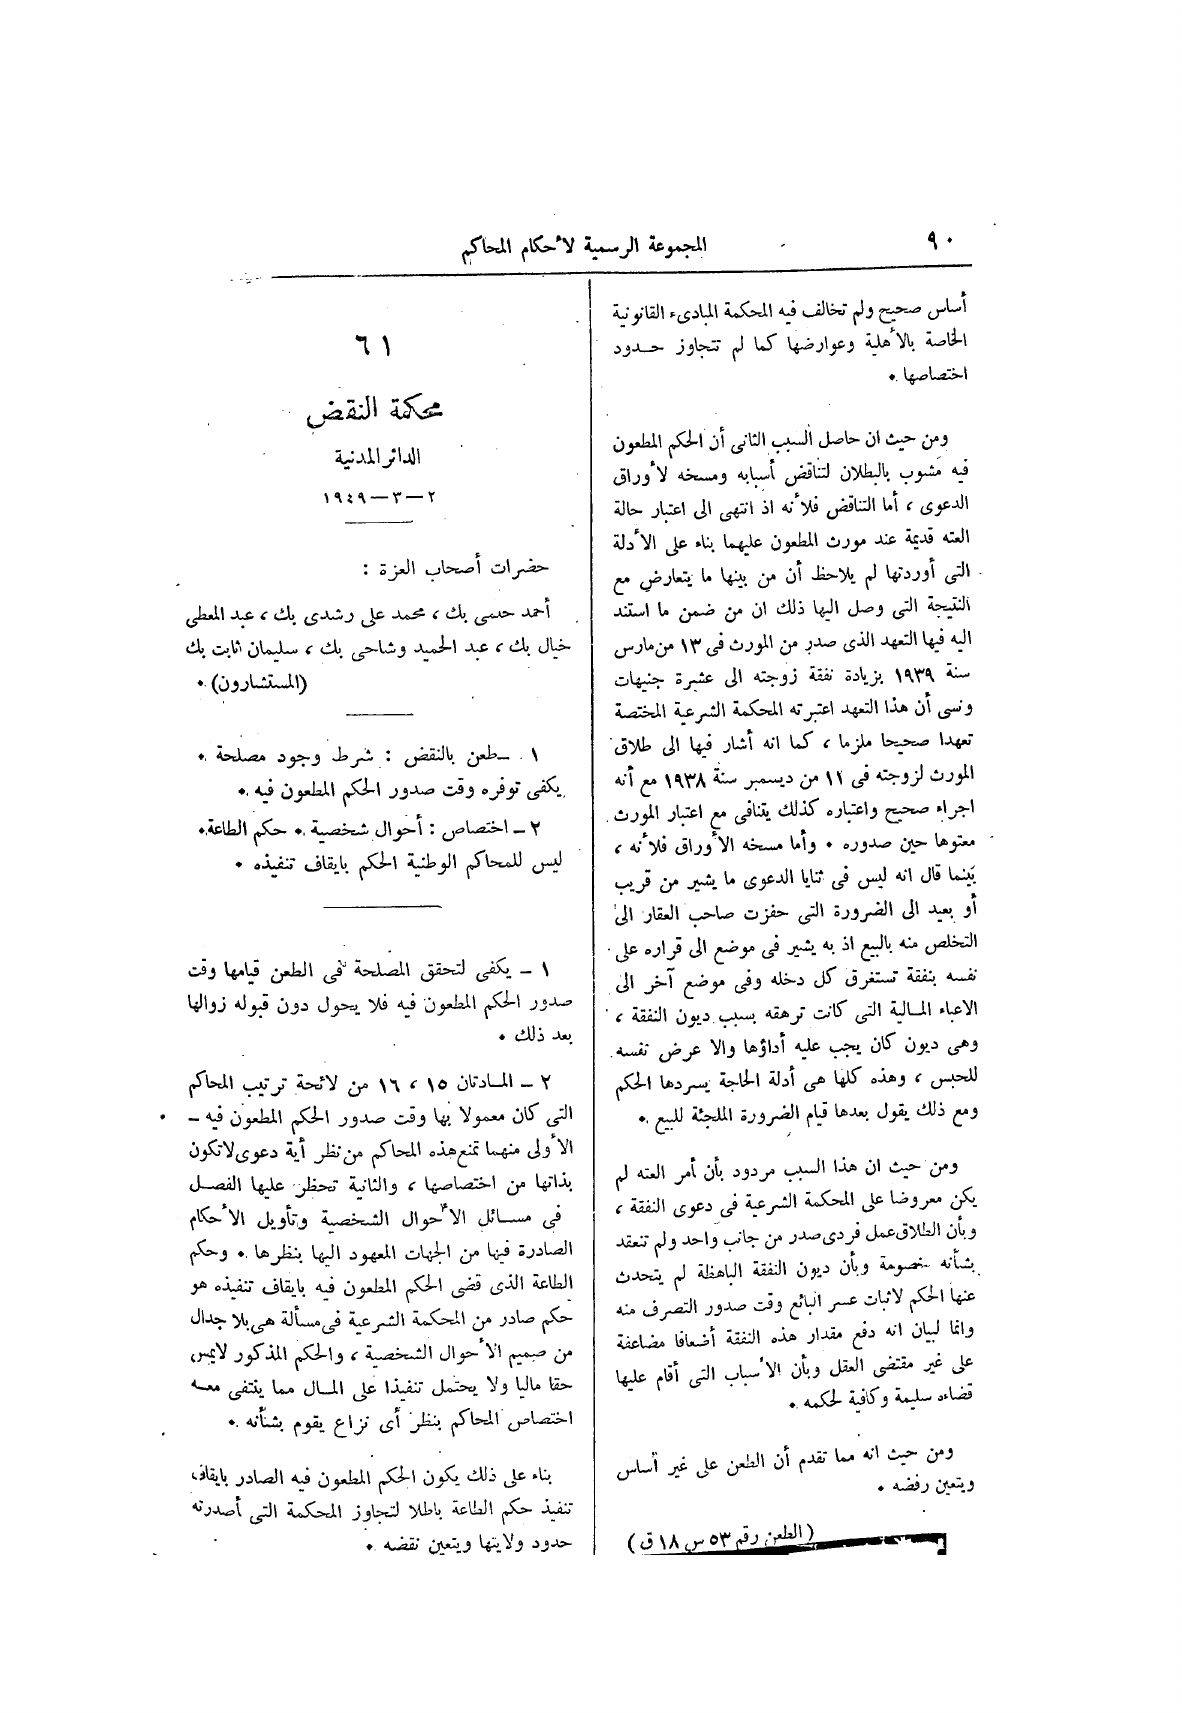 ٩٠
المجموعة الرسمية لأحكام المحاكم
أساس صحيح ولم تخالف فيه المحكمة المبادىء القانونية
الخاصة بالأهلية وعوارضها كما لم تتجاوز حدود
اختصاصها .
ومن حيث ان حاصل السبب الثانى أن الحكم المطعون
فيه مشوب بالبطلان لتناقض أسبابه ومسخه لأوراق
الدعوى ، أما التناقض فلأنه اذ انتهى الى اعتبار حالة
العته قديمة عند مورث المطعون عليهما بناء على الأدلة
التى أوردتها لم يلاحظ أن من بينها ما يتعارض مع
النتيجة التى وصل اليها ذلك ان من ضمن ما استند
اليه فيها التعهد الذى صدر من المورث فى ١٣ من مارس
سنة ١٩٣٩ بزيادة نفقة زوجته الى عشرة جنيهات
ونسى أن هذا التعهد اعتبرته المحكمة الشرعية المختصة
تعهدا صحيحا ملزما ، كما انه أشار فيها الى طلاق
المورث لزوجته فى ١١ من ديسمبر سنة ١٩٣٨ مع أنه
اجراء صحيح واعتباره كذلك يتنافى مع اعتبار المورث
معتوها حين صدوره . وأما مسخه الأوراق فلأنه ،
بينما قال انه ليس فى ثنايا الدعوى ما يشير من قريب
أو بعيد الى الضرورة التى حفزت صاحب العقار الى
التخلص منه بالبيع اذ به يشير فى موضع الى قراره على
نفسه بنفقة تستغرق كل دخله وفى موضع آخر الى
الاعباء المالية التى كانت ترهقه بسبب ديون النفقة ،
وهى ديون كان يجب عليه أداؤها والا عرض نفسه
للحبس ، وهذه كلها هى أدلة الحاجة يسردها الحكم
ومع ذلك يقول بعدها قيام الضرورة الملجئة للبيع .
ومن حيث ان هذا السبب مردود بأن أمر العته لم
يكن معروضا على المحكمة الشرعية فى دعوى النفقة ،
وبأن الطلاق عمل فردى صدر من جانب واحد ولم تنعقد
بشأنه خصومة وبأن ديون النفقة الباهظة لم يتحدث
عنها الحكم لاثبات عسر البائع وقت صدور التصرف منه
وانما لبيان انه دفع مقدار هذه النفقة أضعافا مضاعفة
على غير مقتضى العقل وبأن الأسباب التى أقام عليها
قضاءه سليمة وكافية لحكمه .
ومن حيث انه مما تقدم أن الطعن على غير أساس
ويتعين رفضه .
( الطعن رقم ٥٣ س ١٨ ق )
٦١
محكمة النقض
الدائر المدنية
٢ – ٣ – ١٩٤٩
حضرات أصحاب العزة :
أحمد حسنى بك ، محمد على رشدى بك ، عبد المعطى
خيال بك ، عبد الحميد وشاحى بك ، سليمان ثابت بك
(المستشارون) .
١ – طعن بالنقض : شرط وجود مصلحة .
يكفى توفره وقت صدور الحكم المطعون فيه .
٢ – اختصاص : أحوال شخصية . حكم الطاعة .
ليس للمحاكم الوطنية الحكم بايقاف تنفيذه .
١ – يكفى لتحقق المصلحة فى الطعن قيامها وقت
صدور الحكم المطعون فيه فلا يحول دون قبوله زوالها
بعد ذلك .
٢ – المادتان ١٥ ، ١٦ من لائحة ترتيب المحاكم
التى كان معمولا بها وقت صدور الحكم المطعون فيه –
الأولى منهما تمنع هذه المحاكم من نظر أية دعوى لا تكون
بذاتها من اختصاصها ، والثانية تحظر عليها الفصل
فى مسائل الأحوال الشخصية وتأويل الأحكام
الصادرة فيها من الجهات المعهود اليها بنظرها . وحكم
الطاعة الذى قضى الحكم المطعون فيه بايقاف تنفيذه هو
حكم صادر من المحكمة الشرعية فى مسألة هى بلا جدال
من صميم الأحوال الشخصية ، والحكم المذكور لا يمس
حقا ماليا ولا يحتمل تنفيذا على المال مما ينتفى معه
اختصاص المحاكم بنظر أى نزاع يقوم بشأنه .
بناء على ذلك يكون الحكم المطعون فيه الصادر بايقاف
تنفيذ حكم الطاعة باطلا لتجاوز المحكمة التى أصدرته
حدود ولايتها ويتعين نقضه .